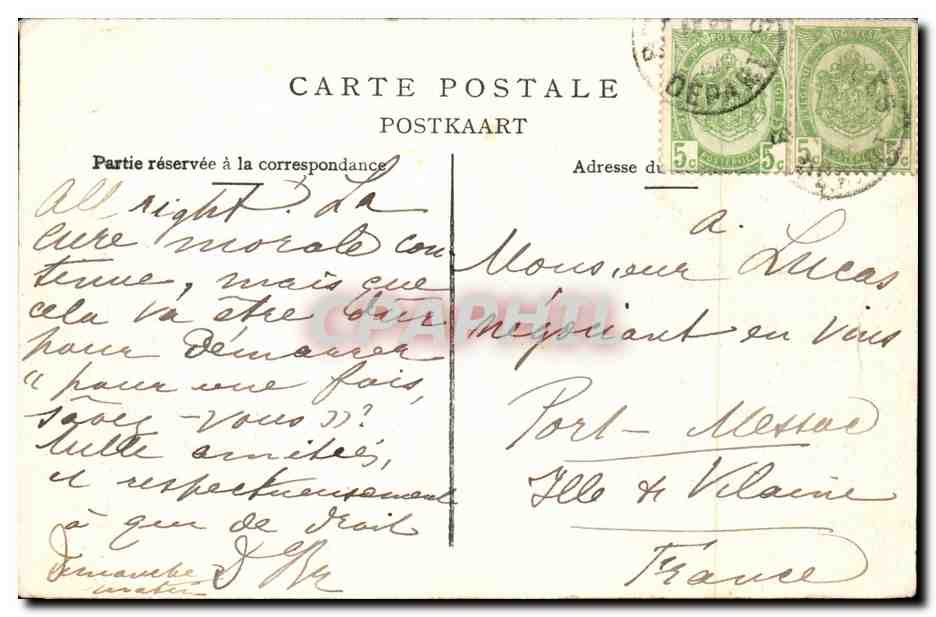 CARTE POSTALE
POSTKAART
Partie réservée à la correspondance
Adresse du
All right. La
cure morale con
tinue, mais que
cela va être dur
pour démarrer
"pour une fois,
savez-vous"?
Mille amitiés,
et respectueusement
à qui de droit
Dimanche
matin
a.
Monsieur Lucas
négociant en vins
Port-Messac
Ille & Vilaine
France
DEPART
5c 5c 5c 5c
CPAPHIL